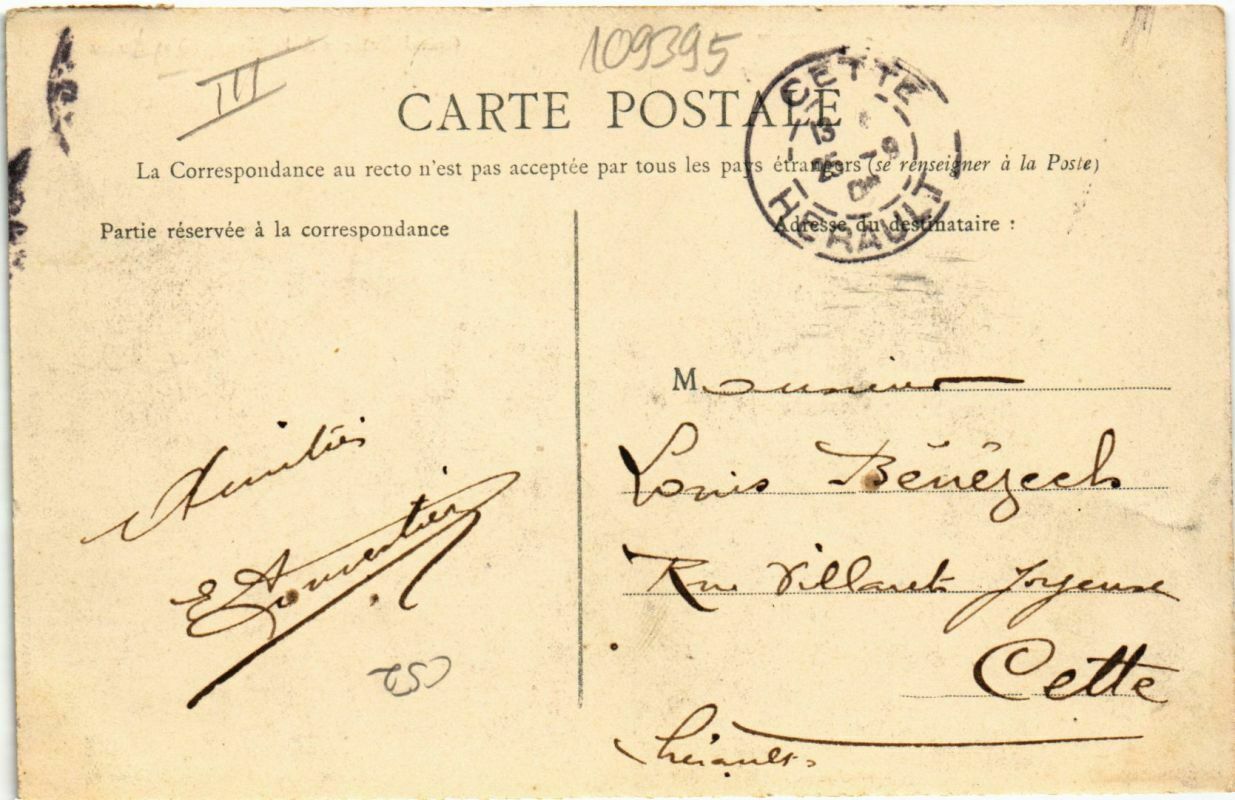 109395
III
CARTE POSTALE
La Correspondance au recto n'est pas acceptée par tous les pays étrangers (se renseigner à la Poste)
CETTE
HERAULT
Partie réservée à la correspondance
Adresse du destinataire :
Monsieur
Louis Bénézech
Rue Villaret Joyeuse
Cette
Hérault
Amitiés
CS2